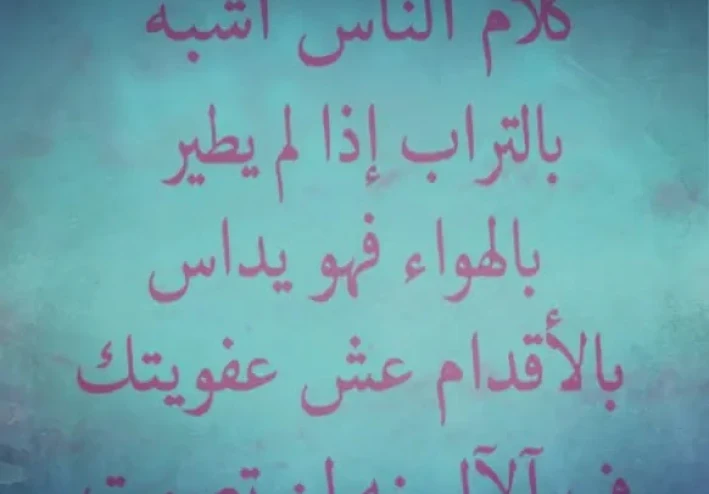 كلام الناس أشبه
بالتراب إذا لم يطير
بالهواء فهو يداس
بالأقدام عش عفويتك